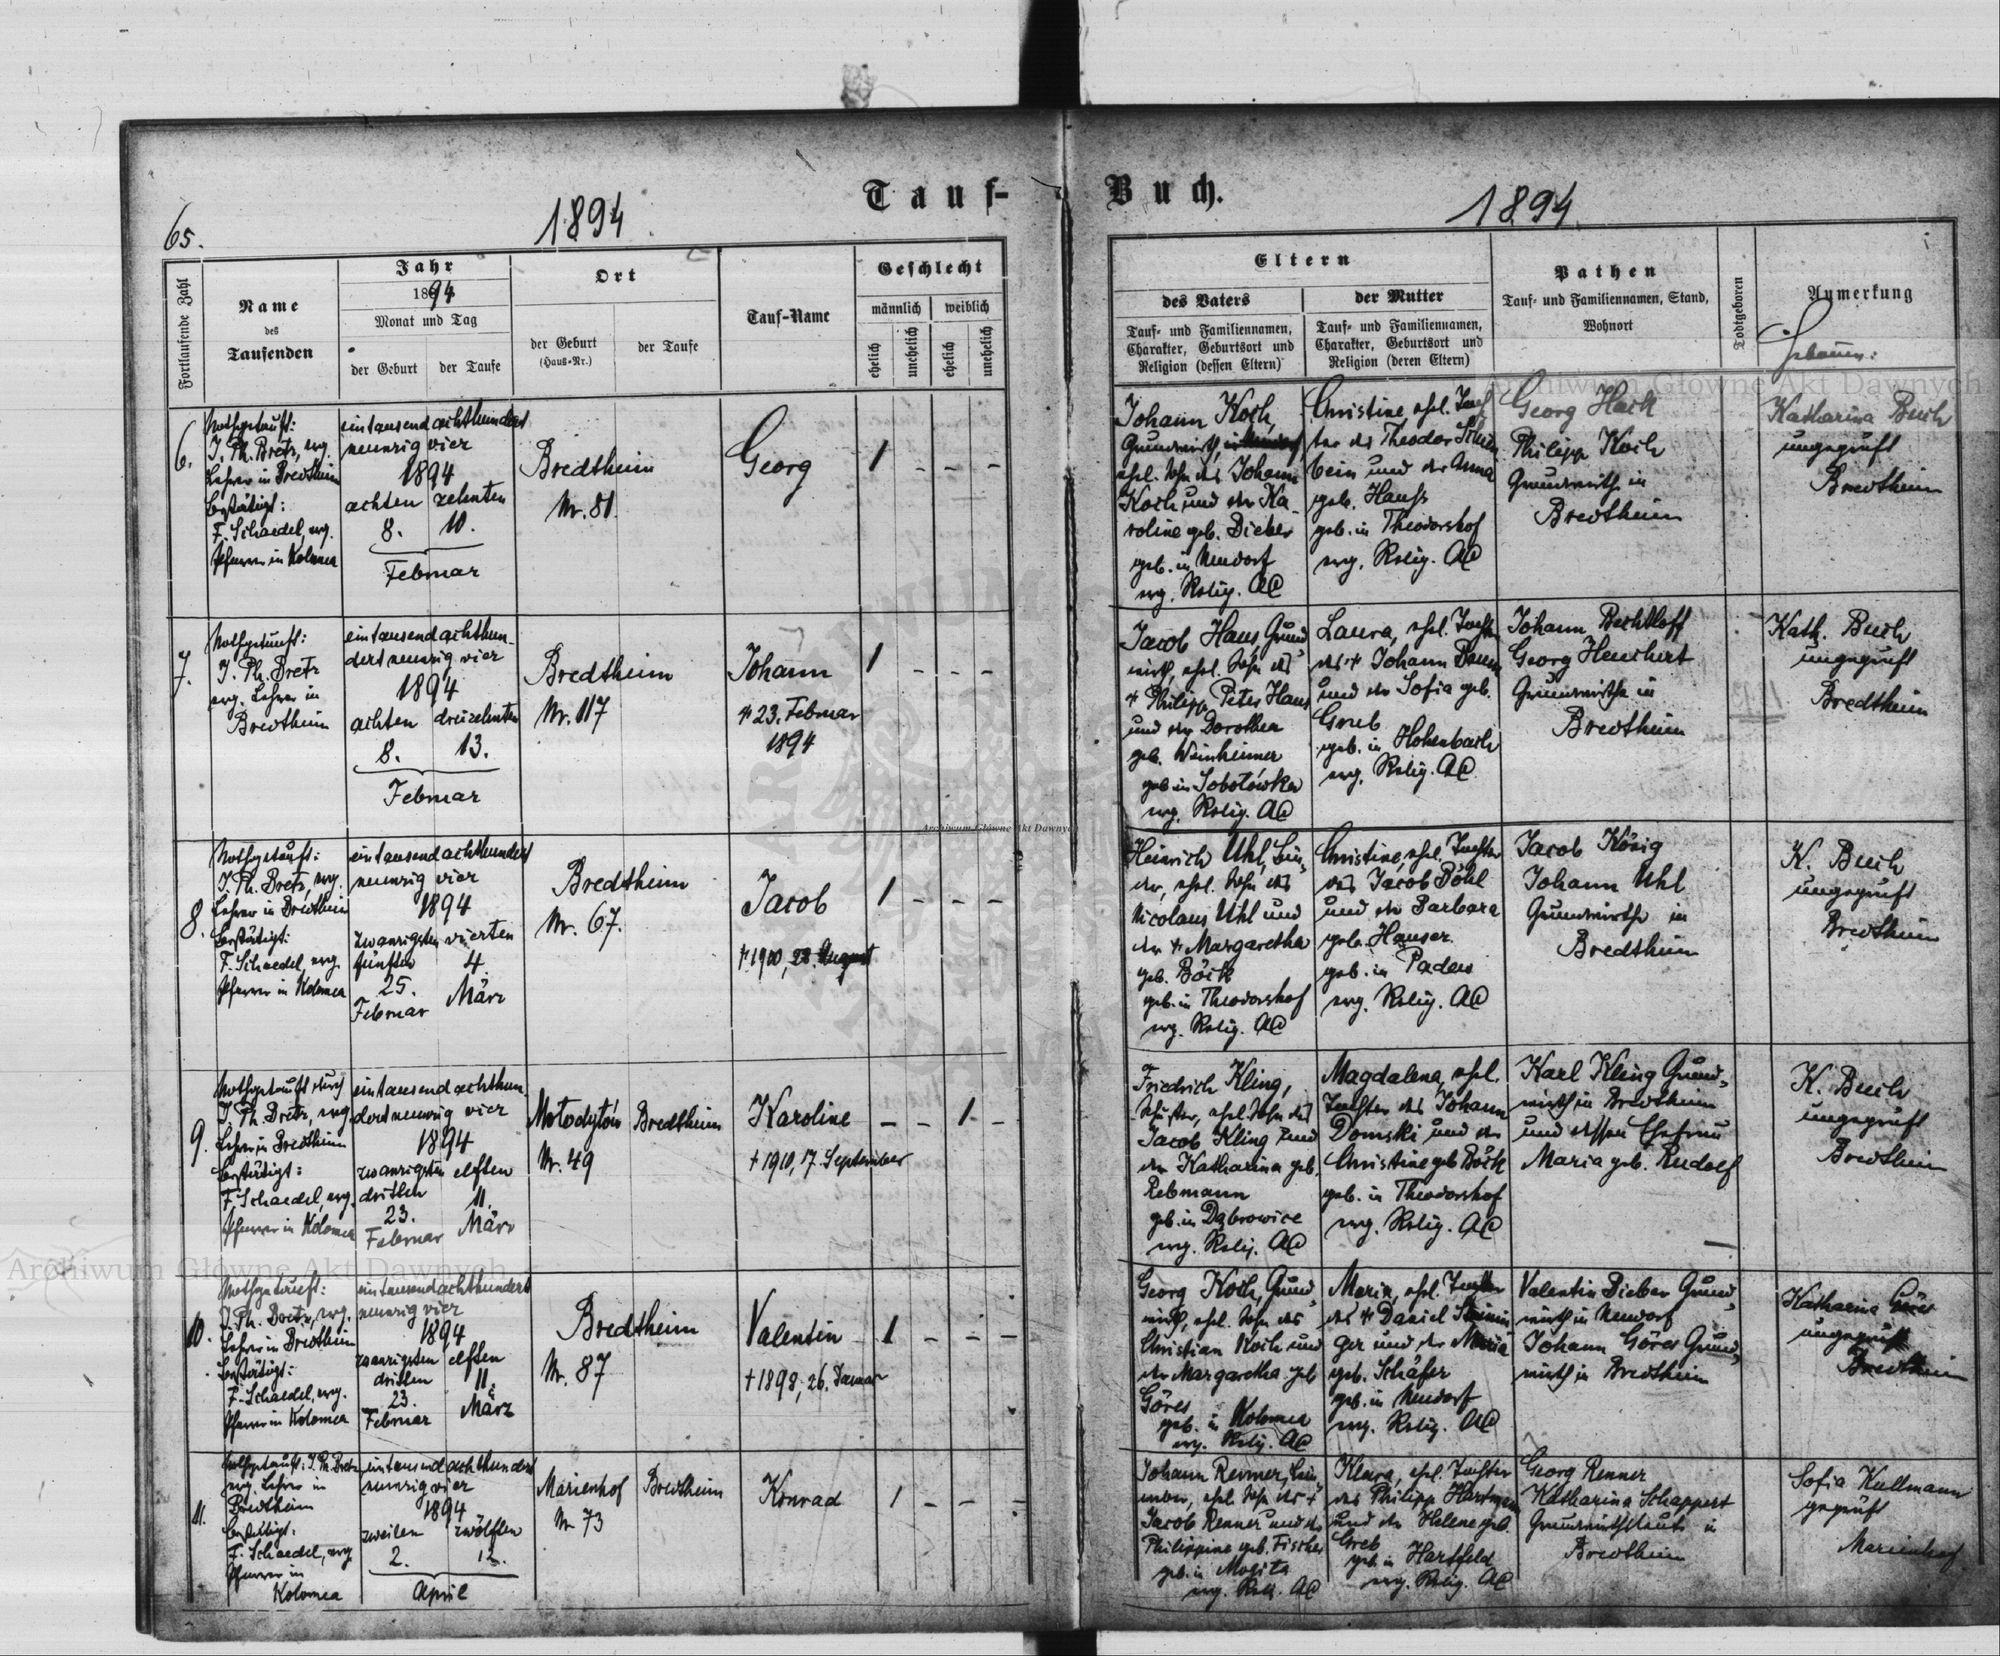 65.
1894
Tauf-
Buch.
1894
Fortlaufende Zahl
Name
des
Taufenden
Jahr
1894
Monat und Tag
der Geburt
der Taufe
Ort
der Geburt
(Haus-Nr.)
der Taufe
Tauf-Name
Geschlecht
männlich
weiblich
ehelich
unehelich
ehelich
unehelich
Eltern
des Vaters
Tauf- und Familiennamen,
Charakter, Geburtsort und
Religion (dessen Eltern)
der Mutter
Tauf- und Familiennamen,
Charakter, Geburtsort und
Religion (deren Eltern)
Pathen
Tauf- und Familiennamen, Stand,
Wohnort
Todtgeboren
Anmerkung
6.
Nothgetauft:
J. Ph. Bretz, evg.
Lehrer in Bredtheim
Bestätigt:
F. Schaedel, evg.
Pfarrer in Kolomea
eintausend achthundert
neunzig vier
1894
achten zehnten
8. 10.
Februar
Bredtheim
Nr. 81.
Georg
1 - - -
Johann Koch,
Grundwirth,
ehel. Sohn des Johann
Koch und der Ka-
roline geb. Dieber
geb. in Neudorf
evg. Relig. AC
Christine, ehel. Toch
ter des Theodor Schön
bein und der Anna
geb. Hauss
geb. in Theodorshof
evg. Relig. AC
Georg Hack
Philipp Koch
Grundwirthe in
Bredtheim
Katharina Buch
ungeprüft
Bredtheim
7.
Nothgetauft:
J. Ph. Bretz
evg. Lehrer in
Bredtheim
eintausend achthun-
dert neunzig vier
1894
achten dreizehnten
8. 13.
Februar
Bredtheim
Nr. 117
Johann
† 23. Februar
1894
1 - - -
Jacob Haus, Grund
wirth, ehel. Sohn des
† Philipp Peter Haus
und der Dorothea
geb. Weinheimer
geb. in Sobotówka
evg. Relig. AC
Laura, ehel. Tochter
des † Johann
und der Sofia geb.
Greb
geb. in Hohenbach
evg. Relig. AC
Johann Bechtloff
Georg Heuchert
Grundwirthe in
Bredtheim
Kath. Buch
ungeprüft
Bredtheim
8.
Nothgetauft:
J. Ph. Bretz, evg.
Lehrer in Bredtheim
Bestätigt:
F. Schaedel, evg.
Pfarrer in Kolomea
eintausend achthundert
neunzig vier
1894
zwanzigsten vierten
fünften 4.
25. März
Februar
Bredtheim
Nr. 67.
Jacob
† 1910, 28. August
1 - - -
Heinrich Uhl,
der, ehel. Sohn des
Nicolaus Uhl und
der † Margaretha
geb. Böck
geb. in Theodorshof
evg. Relig. AC
Christine, ehel. Tochter
des Jacob Pöhl
und der Barbara
geb. Hauser
geb. in Padew
evg. Relig. AC
Jacob König
Johann Uhl
Grundwirthe in
Bredtheim
K. Buch
ungeprüft
Bredtheim
9.
Nothgetauft durch
J. Ph. Bretz, evg.
Lehrer in Bredtheim
Bestätigt:
F. Schaedel, evg.
Pfarrer in Kolomea
eintausend achthun
dert neunzig vier
1894
zwanzigsten elften
dritten 11.
23. März
Februar
Mołodyłów Bredtheim
Nr. 49
Karoline
† 1910, 17. September
- - 1 -
Friedrich Kling,
Schuster, ehel. Sohn des
Jacob Kling und
der Katharina geb.
Rebmann
geb. in Dąbrowice
evg. Relig. AC
Magdalena, ehel.
Tochter des Johann
Domski und der
Christine geb Böck
geb. in Theodorshof
evg. Relig. AC
Karl Kling Grund-
wirth in Bredtheim
und dessen Ehefrau
Maria geb. Rudolf
K. Buch
ungeprüft
Bredtheim
10.
Nothgetauft:
J. Ph. Bretz, evg.
Lehrer in Bredtheim
Bestätigt:
F. Schaedel, evg.
Pfarrer in Kolomea
eintausend achthundert
neunzig vier
1894
zwanzigsten elften
dritten 11.
23. März
Februar
Bredtheim
Nr. 87
Valentin
† 1898, 26. Januar
1 - - -
Georg Koch, Grund
wirth, ehel. Sohn des
Christian Koch und
der Margaretha geb
Göres
geb. in Kolomea
evg. Relig. AC
Maria, ehel. Tochter
des † Daniel
ger und der Maria
geb. Schäfer
geb. in Neudorf
evg. Relig. AC
Valentin Dieber Grund-
wirth in Neudorf
Johann Göres Grund-
wirth in Bredtheim
Katharina Göres
ungeprüft
Bredtheim
11.
Nothgetauft: J. Ph. Bretz
evg. Lehrer in
Bredtheim
Bestätigt:
F. Schaedel, evg
Pfarrer in
Kolomea
eintausend achthundert
neunzig vier
1894
zweiten zwölften
2. 12.
April
Marienhof Bredtheim
Nr 73
Konrad
1 - - -
Johann Renner,
ehel. Sohn des †
Jacob Renner und der
Philippine geb. Fischer
geb. in Mogiła
evg. Relig. AC
Klara, ehel. Tochter
des Philipp Hartmann
und der Helene geb.
Greb
geb. in Hartfeld
evg. Relig. AC
Georg Renner
Katharina Schappert
Grundwirthsleute in
Bredtheim
Sofia Kullmann
geprüft
Marienhof
Archiwum Główne Akt Dawnych
Archiwum Główne Akt Dawnych
Archiwum Główne Akt Dawnych